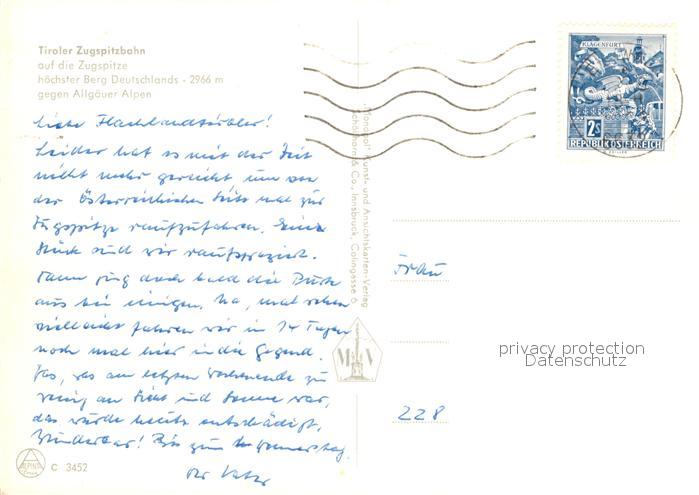 Tiroler Zugspitzbahn
auf die Zugspitze
höchster Berg Deutschlands - 2966 m
gegen Allgäuer Alpen
Liebe Flachlandtiroler!
Leider hat es mit der Zeit
nicht mehr gereicht um von
der Österreichischen Seite mal zur
Zugspitze raufzufahren. Ein
Stück sind wir raufspaziert.
Dann ging doch bald die Puste
aus bei einigen. Na, mal sehen
vielleicht fahren wir in 14 Tagen
noch mal hier in die Gegend.
Das, was am letzten Wochenende zu
wenig an Sicht und Sonne war,
das wurde heute entschädigt,
Wunderbar! Bis zum Donnerstag
der Vater
C 3452
ALPINA
"Monopol" Kunst- und Ansichtskarten-Verlag
Schöllhorn & Co., Innsbruck, Colingasse 6
M V
KLAGENFURT
2S
REPUBLIK ÖSTERREICH
Frau
228
privacy protection
Datenschutz